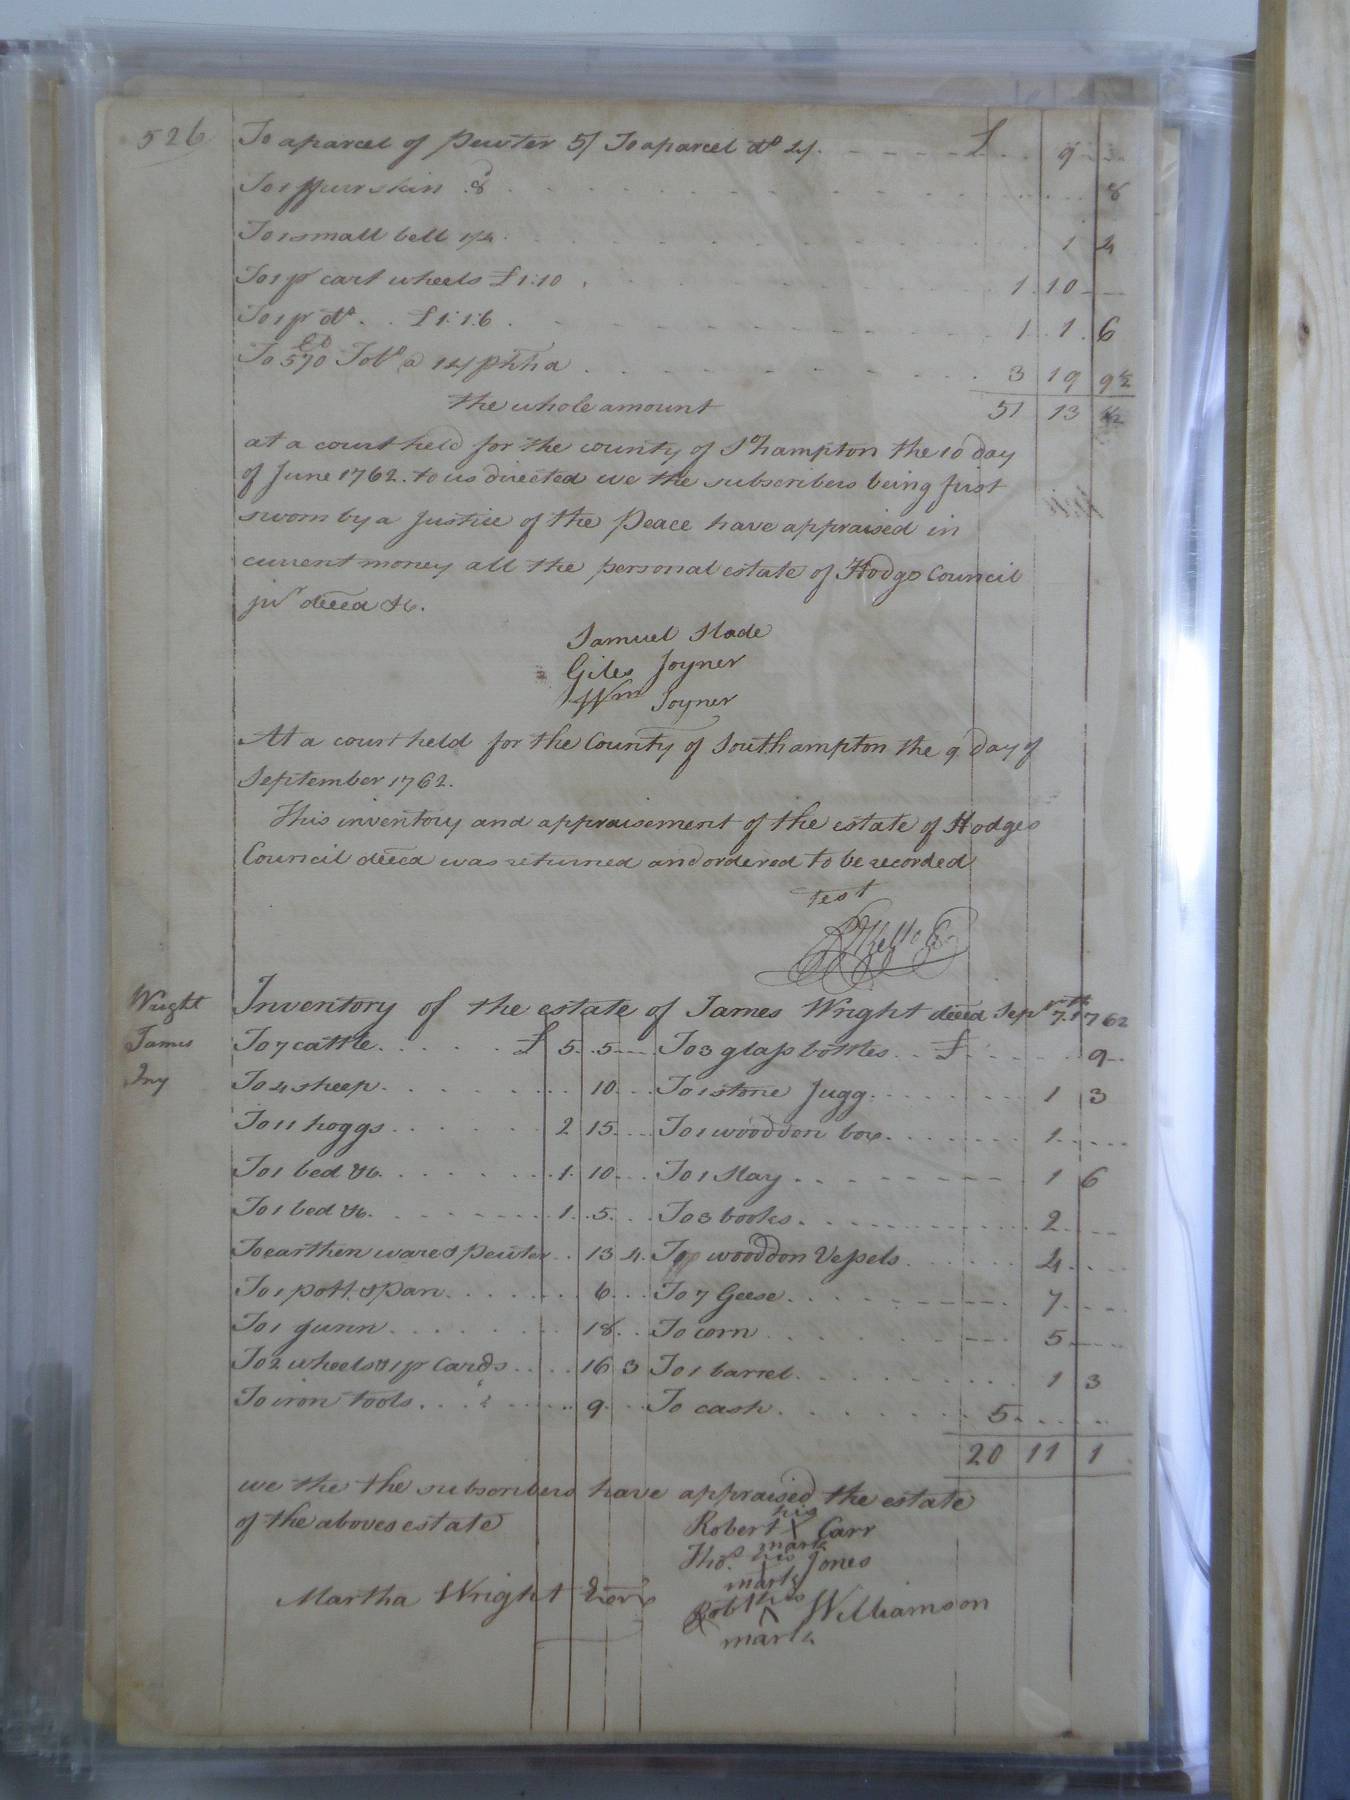 526
To a parcel of Pewter 5/ To a parcel do 4/. £ 9
To 1 furr skin 8d 8
To 1 small bell 1/4 1 4
To 1 pr cart wheels £1:10 1 10
To 1 pr do £1:1:6 1 1 6
To 570 Tobo @ 14/ 3 19 9 1/2
the whole amount 51 13 1/2
at a court held for the county of Sohampton the 10 day
of June 1762. to us directed we the subscribers being first
sworn by a Justice of the Peace have appraised in
current money all the personal estate of Hodges Council
jur deced &c.
Samuel Slade
Giles Joyner
Wm Joyner
At a court held for the County of Southampton the 9 day of
September 1762.
This inventory and appraisement of the estate of Hodges
Council deced was returned and ordered to be recorded
Test
Kello
Wright
James
Iny
Inventory of the estate of James Wright deced Sepr 7th 1762
To 7 cattle £ 5 5 To 3 glass bottles £ 9
To 4 sheep 10 To 1 stone Jugg 1 3
To 11 hoggs 2 15 To 1 wooddon box 1
To 1 bed &c. 1 10 To 1 Slay 1 6
To 1 bed &c. 1 5 To 3 books 2
To earthin ware & Pewter 13 4 To wooddon Vessels 4
To 1 pott & Pan 6 To 7 Geese 7
To 1 gunn 18 To corn 5
To 2 wheels & 1 pr Cards 16 3 To 1 barrel 1 3
To iron tools 9 To cash 5
20 11 1
we the the subscribers have appraised the estate
of the aboves estate
Robert his X mark Carr
Thos. his mark Jones
Robt his mark Williamson
Martha Wright Exors